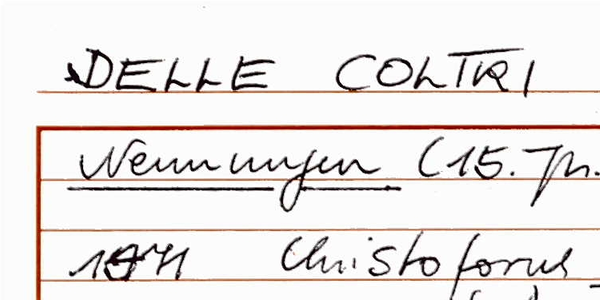 DELLE COLTRI
Nennungen (15. Jh.
1471 Christoforus